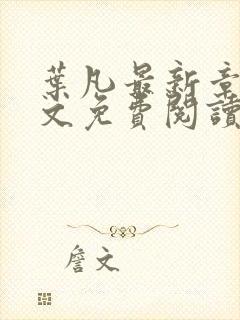 葉凡最新章
文免費閱讀
詹文